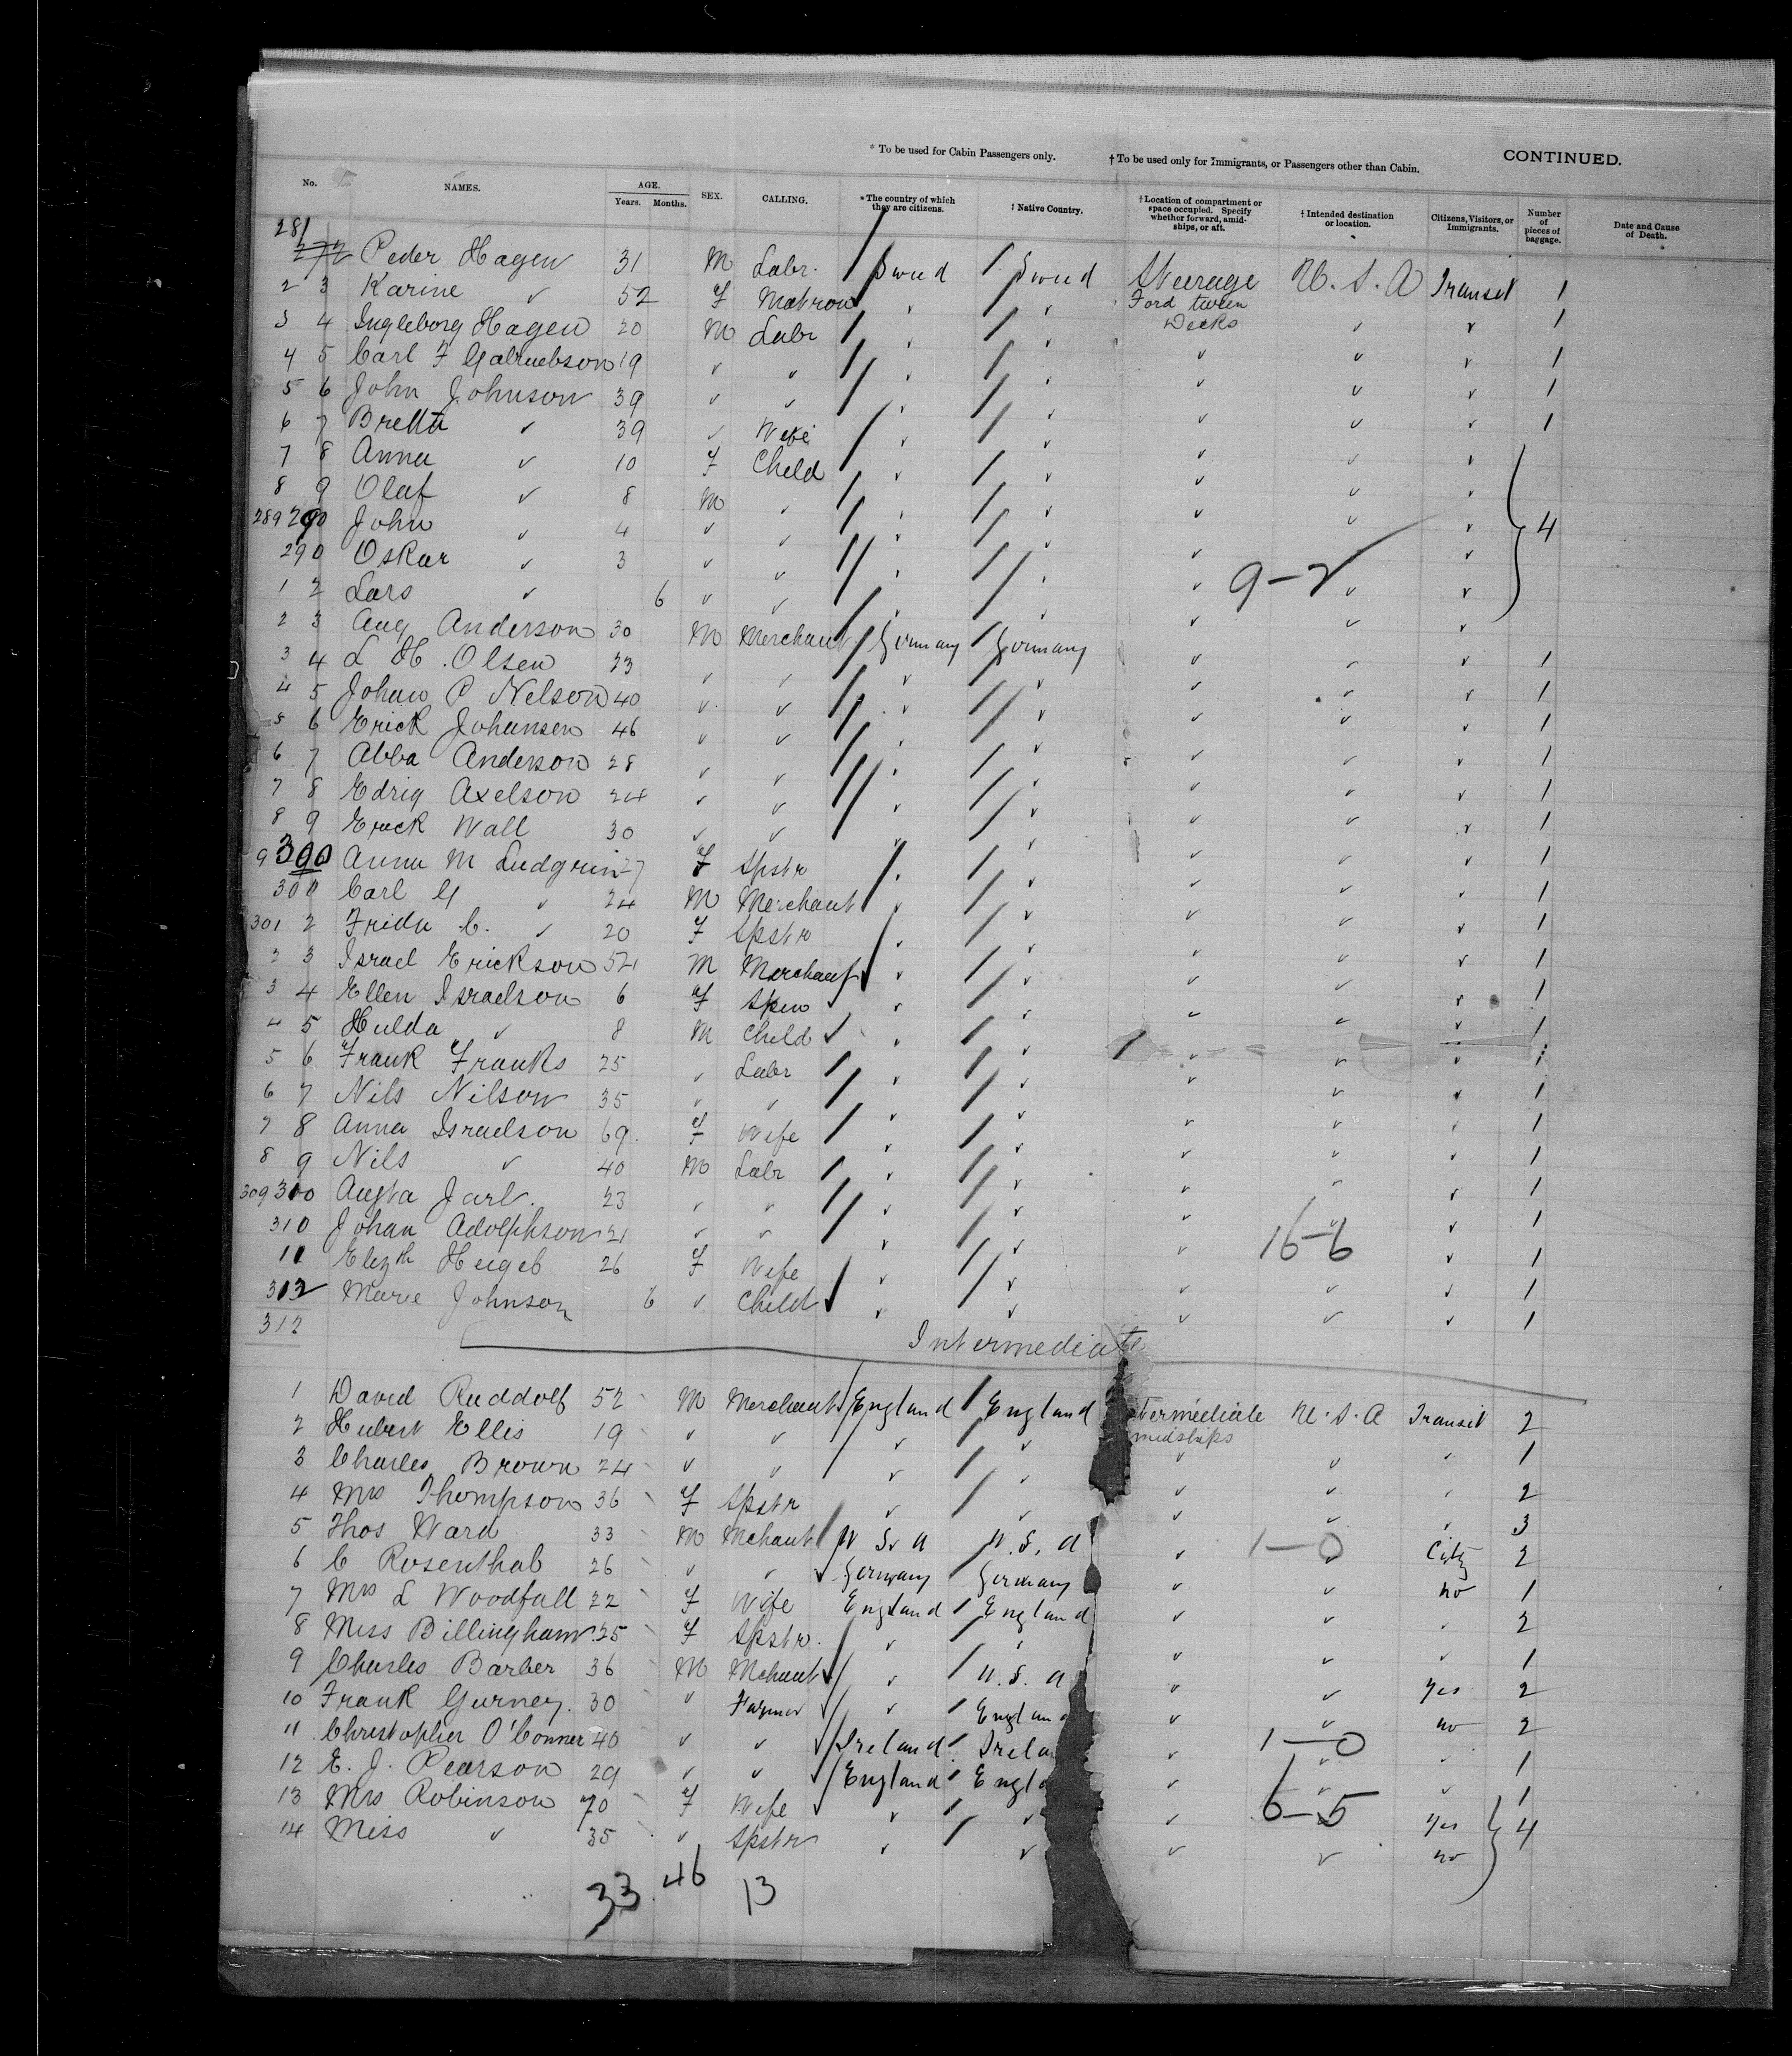 * To be used for Cabin Passengers only. † To be used only for Immigrants, or Passengers other than Cabin. CONTINUED.
No. NAMES. AGE. Years. Months. SEX. CALLING. * The country of which they are citizens. † Native Country. † Location of compartment or space occupied. Specify whether forward, amidships, or aft. † Intended destination or location. Citizens, Visitors, or Immigrants. Number of pieces of baggage. Date and Cause of Death.
281
Peder Hagen 31 M Labr. Swed Swed Steerage U.S.A Transit 1
2 3 Karine ✓ 52 F Matron ✓ ✓ Ford tween Decks ✓ ✓ 1
3 4 Ingleborg Hagen 20 M Labr ✓ ✓ ✓ ✓ ✓ 1
4 5 Carl F 19 ✓ ✓ ✓ ✓ ✓ ✓ ✓ 1
5 6 John Johnson 39 ✓ ✓ ✓ ✓ ✓ ✓ ✓ 1
6 7 Bretta ✓ 39 ✓ Wife ✓ ✓ ✓ ✓ ✓
7 8 Anna ✓ 10 F Child ✓ ✓ ✓ ✓ ✓
8 9 Olaf ✓ 8 M ✓ ✓ ✓ ✓ ✓ ✓
289 290 John ✓ 4 ✓ ✓ ✓ ✓ ✓ ✓ ✓ 4
290 Oskar ✓ 3 ✓ ✓ ✓ ✓ ✓ 9-2 ✓ ✓
1 2 Lars ✓ 6 ✓ ✓ ✓ ✓ ✓ ✓ ✓
2 3 Aug Anderson 30 M Merchant Germany Germany ✓ ✓ ✓ 1
3 4 L H. Olsen 23 ✓ ✓ ✓ ✓ ✓ ✓ ✓ 1
4 5 Johan P Nelson 40 ✓ ✓ ✓ ✓ ✓ ✓ ✓ 1
5 6 Erick Johansen 46 ✓ ✓ ✓ ✓ ✓ ✓ ✓ 1
6 7 Abba Anderson 28 ✓ ✓ ✓ ✓ ✓ ✓ ✓ 1
7 8 Edrig Axelson 24 ✓ ✓ ✓ ✓ ✓ ✓ ✓ 1
8 9 Erick Wall 30 ✓ ✓ ✓ ✓ ✓ ✓ ✓ 1
9 300 Anna M Ludgrin 27 F Spstr ✓ ✓ ✓ ✓ ✓ 1
300 Carl G ✓ 24 M Merchant ✓ ✓ ✓ ✓ ✓ 1
301 2 Frida C. ✓ 20 F Spstr ✓ ✓ ✓ ✓ ✓ 1
2 3 Israel Erickson 52 M Merchant ✓ ✓ ✓ ✓ ✓ 1
3 4 Ellen Israelson 6 F ✓ ✓ ✓ ✓ ✓ 1
4 5 Hulda ✓ 8 M Child ✓ ✓ ✓ ✓ ✓ 1
5 6 Frank Franks 25 ✓ Labr ✓ ✓ ✓ ✓ ✓ 1
6 7 Nils Nilson 35 ✓ ✓ ✓ ✓ ✓ ✓ ✓ 1
7 8 Anna Israelson 69. F Wife ✓ ✓ ✓ ✓ ✓ 1
8 9 Nils ✓ 40 M Labr ✓ ✓ ✓ ✓ ✓ 1
309 310 Augta Jarl. 23 ✓ ✓ ✓ ✓ ✓ ✓ ✓ 1
310 Johan Adolphson 21 ✓ ✓ ✓ ✓ ✓ 16-6 ✓ 1
11 Elizth 26 F Wife ✓ ✓ ✓ ✓ ✓ 1
312 Marie Johnson 6 ✓ Child ✓ ✓ ✓ ✓ ✓ 1
312
Intermediate
1 David Ruddolf 52 M Merchant England England Intermediate midships U.S.A Transit 2
2 Hubert Ellis 19 ✓ ✓ ✓ ✓ ✓ ✓ ✓ 1
3 Charles Brown 24 ✓ ✓ ✓ ✓ ✓ ✓ ✓ 2
4 Mrs Thompson 36 F Spstr ✓ ✓ ✓ ✓ ✓ 3
5 Thos Ward 33 M Mchant U S A U.S.A ✓ 1-0 City 2
6 C Rosenthal 26 ✓ ✓ Germany Germany ✓ ✓ no 1
7 Mrs L Woodfall 22 F Wife England England ✓ ✓ ✓ 2
8 Miss Billingham 25 F Spstr. ✓ ✓ ✓ ✓ ✓ 1
9 Charles Barber 36 M Mchant ✓ U.S.A ✓ ✓ yes 2
10 Frank Gurney. 30 ✓ Farmer ✓ England ✓ ✓ no 2
11 Christopher O'Conner 40 ✓ ✓ Ireland Irela ✓ 1-0 ✓ 1
12 E. J. Pearson 29 ✓ ✓ England Engla ✓ ✓ ✓ 1
13 Mrs Robinson 70 F Wife ✓ ✓ ✓ 6-5 yes
14 Miss ✓ 35 ✓ Spstr ✓ ✓ ✓ ✓ no 4
33 46 13